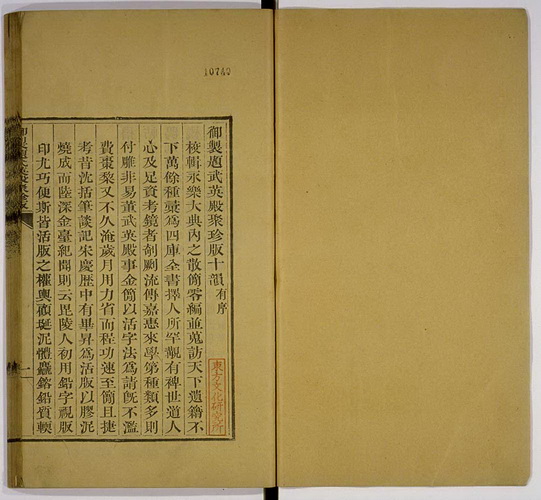 10740
御製題武英殿聚珍版十韻有序
校輯永樂大典內之散簡零編並蒐訪天下遺籍不
下萬餘種彙為四庫全書擇人所罕覯有裨世道人
心及足資考鏡者剞劂流傳嘉惠來學第種類多則
付雕非易董武英殿事金簡以活字法為請既不濫
費棗黎又不久淹歲月用力省而程功速至簡且捷
考昔沈括筆談記宋慶歷中有畢昇為活版以膠泥
燒成而陸深金臺紀聞則云毘陵人初用鉛字視版
印尤巧便斯皆活版之權輿顧埏泥體麤鎔鉛質輭
東方文化研究所
一